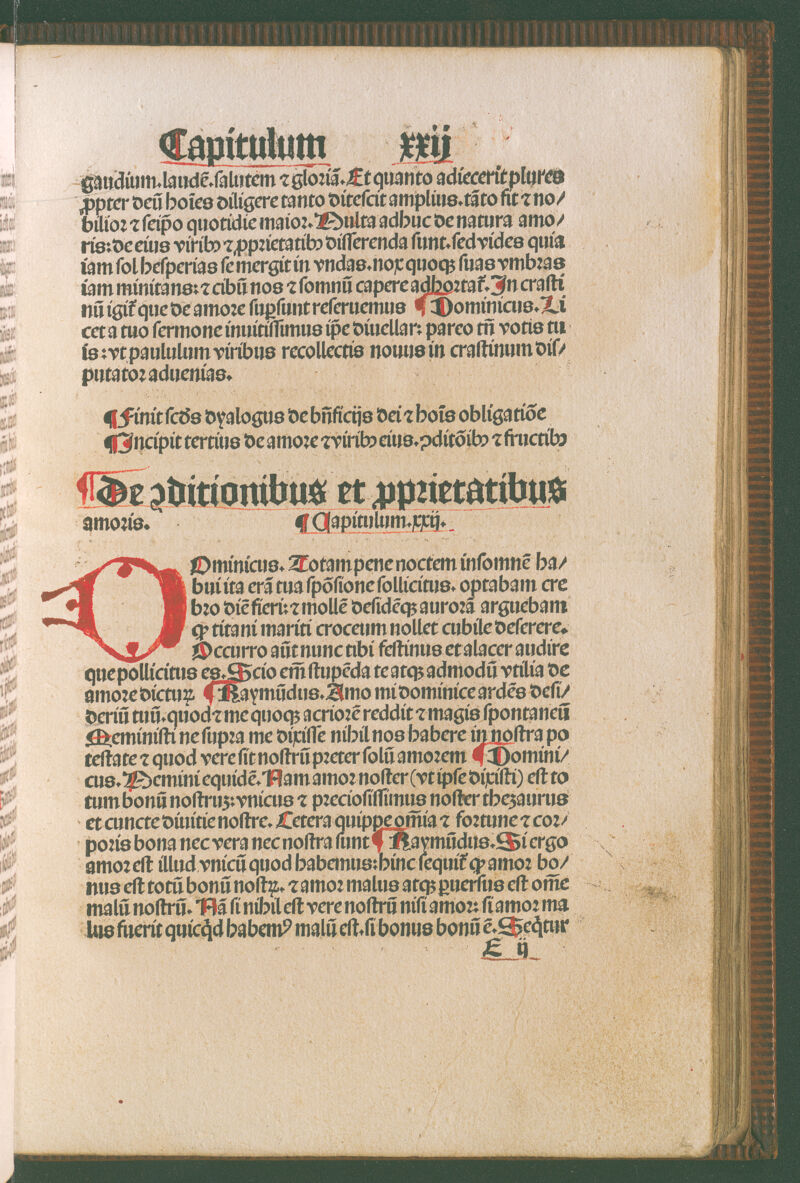 Capitulum xxij
gaudium.laudē.salutem ⁊ gloꝛiā.Et quanto adiecerit plures
ꝓpter deū hoīes diligere tanto ditescit amplius.tāto fit ⁊ no/
bilioꝛ ⁊ seip̄o quotidie maioꝛ.Multa adhuc de natura amo/
ris:de eius viribꝰ ⁊ ꝓpꝛietatibꝰ disserenda sunt.sed vides quia
iam sol hesperias se mergit in vndas.nox quoqꝫ suas vmbꝛas
iam minitans:⁊ cibū nos ⁊ somnū capere adhoꝛtat᷑.In crasti
nū igit᷑ que de amoꝛe suꝑsunt reseruemus ¶ Dominicus.Li
cet a tuo sermone inuitissimus ip̄e diuellar: pareo tn̄ votis tu
is:vt paululum viribus recollectis nouus in crastinum dis/
putatoꝛ aduenias.
¶ Finit scd̄s dyalogus de bn̄ficijs dei ⁊ hoīs obligatiōe
¶ Incipit tertius de amoꝛe ⁊ viribꝰ eius.ꝯditōibꝰ ⁊ fructibꝰ
¶ De ꝯditionibus et ꝓpꝛietatibus
amoꝛis. ¶ Capitulum.xxij.
DOminicus. Totam pene noctem insomnē ha/
bui ita erā tua spōsione sollicitus. optabam cre
bꝛo diē fieri:⁊ mollē desidēqꝫ auroꝛā arguebam
ꝙ titani mariti croceum nollet cubile deserere.
Occurro aūt nunc tibi festinus et alacer audire
que pollicitus es.Scio em̄ stupēda te atqꝫ admodū vtilia de
amoꝛe dictuꝝ ¶ Raymūdus.Amo mi dominice ardēs desi/
deriū tuū.quod ⁊ me quoqꝫ acrioꝛē reddit ⁊ magis spontaneū
Meministi ne supꝛa me dixisse nihil nos habere in nostra po
testate ⁊ quod vere sit nostrū pꝛeter solū amoꝛem ¶ Domini/
cus.Memini equidē.Nam amoꝛ noster (vt ipse dixisti) est to
tum bonū nostruꝫ:vnicus ⁊ pꝛeciosissimus noster thezaurus
et cuncte diuitie nostre. Cetera quippe om̄ia ⁊ foꝛtune ⁊ coꝛ/
poꝛis bona nec vera nec nostra sunt ¶ Raymūdus.Si ergo
amoꝛ est illud vnicū quod habemus:hinc sequit᷑ ꝙ amoꝛ bo/
nus est totū bonū nostꝝ. ⁊ amoꝛ malus atqꝫ ꝑuersus est om̄e
malū nostrū. Nā si nihil est vere nostrū nisi amoꝛ: si amoꝛ ma
lus fuerit quicq̇d habemꝰ malū est.si bonus bonū ē.Seq̇tur
E ij